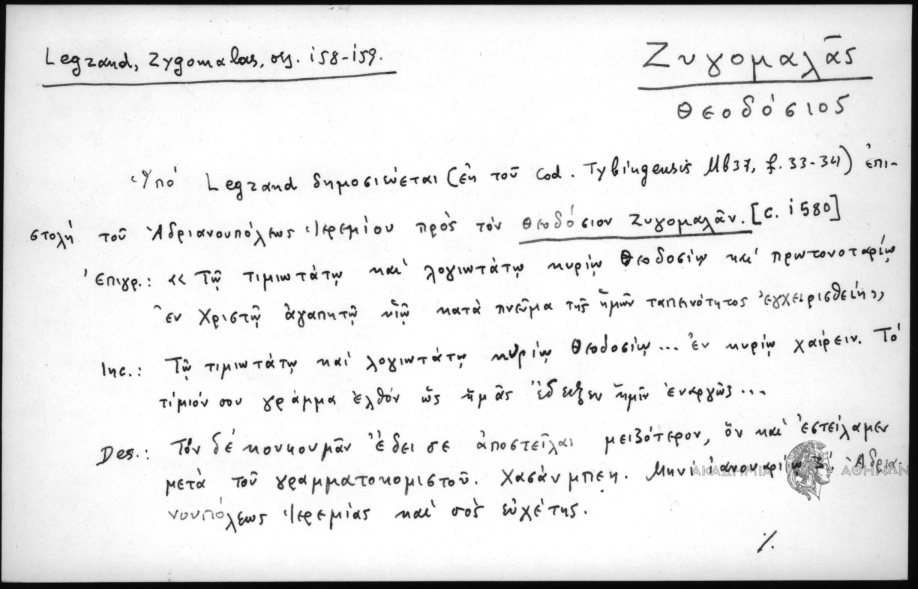 Legrand, Zygomalas, σσ. 158-159.
Ζυγομαλᾶς
Θεοδόσιος
Ὑπό Legrand δημοσιεύεται (ἐκ τοῦ Cod. Tybingensis Mb37, f. 33-34) ἐπι-
στολή τοῦ Ἀδριανουπόλεως Ἱερεμίου πρός τόν Θεοδόσιον Ζυγομαλᾶν. [c. 1580]
Ἐπιγρ.: «Τῷ τιμιωτάτῳ καί λογιωτάτῳ κυρίῳ Θεοδοσίῳ καί πρωτονοταρίῳ
ἐν Χριστῷ ἀγαπητῷ υἱῷ κατά πνεῦμα τῆς ἡμῶν ταπεινότητος ἐγχειρισθείη»
Inc.: Τῷ τιμιωτάτῳ καί λογιωτάτῳ κυρίῳ Θεοδοσίῳ... ἐν κυρίῳ χαίρειν. Τό
τίμιόν σου γράμμα ἐλθόν ὡς ἡμᾶς ἔδειξεν ἡμῖν ἐναργῶς...
Des.: Τόν δέ κουκουμᾶν ἔδει σε ἀποστεῖλαι μειζότερον, ὅν καί ἐστείλαμεν
μετά τοῦ γραμματοκομιστοῦ. Χασάν μπεη. Μηνί ἰανουαρίῳ Ἀδρια-
νουπόλεως Ἱερεμίας καί σός εὐχέτης.
./.
ΑΚΑΔΗΜΙΑ ΑΘΗΝΩΝ